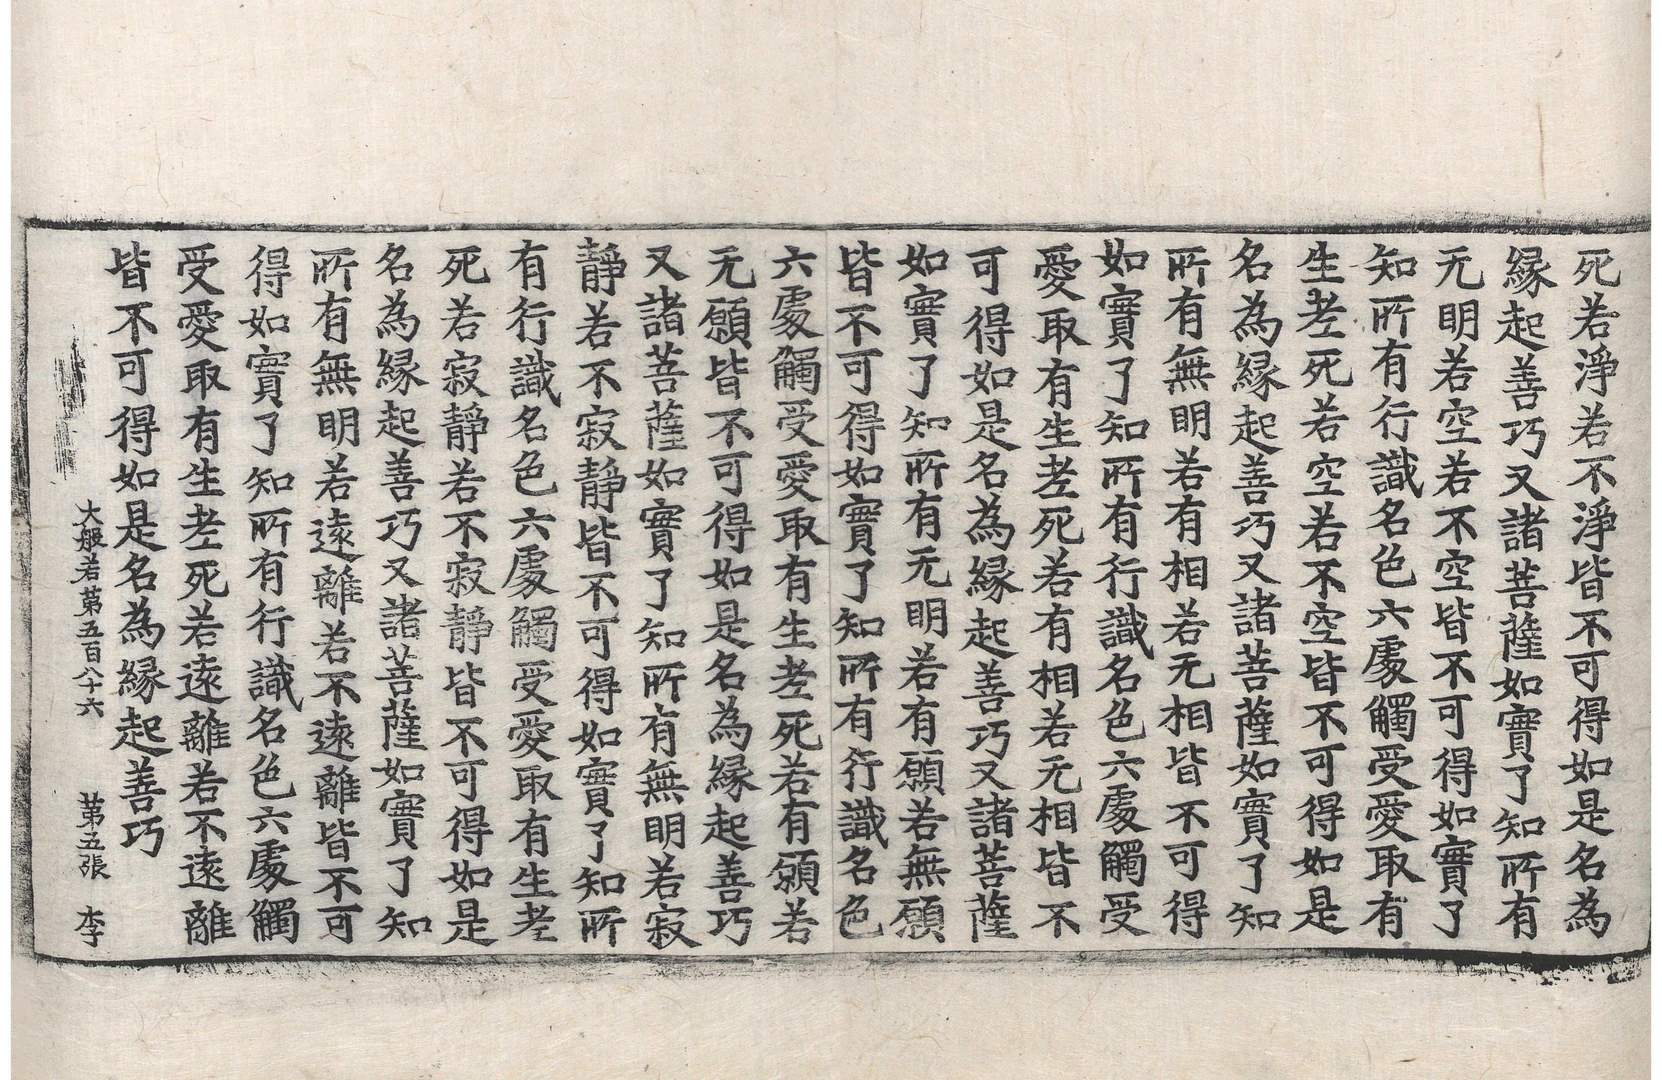 死若淨若不淨皆不可得如是名為
縁起善巧又諸菩薩如實了知所有
无明若空若不空皆不可得如實了
知所有行識名色六處觸受愛取有
生老死若空若不空皆不可得如是
名為縁起善巧又諸菩薩如實了知
所有無明若有相若无相皆不可得
如實了知所有行識名色六處觸受
愛取有生老死若有相若无相皆不
可得如是名為縁起善巧又諸菩薩
如實了知所有无明若有願若無願
皆不可得如實了知所有行識名色
六處觸受愛取有生老死若有願若
无願皆不可得如是名為縁起善巧
又諸菩薩如實了知所有無明若寂
靜若不寂靜皆不可得如實了知所
有行識名色六處觸受愛取有生老
死若寂靜若不寂靜皆不可得如是
名為縁起善巧又諸菩薩如實了知
所有無明若遠離若不遠離皆不可
得如實了知所有行識名色六處觸
受愛取有生老死若遠離若不遠離
皆不可得如是名為縁起善巧
大般若第五百八十六 第五張 李